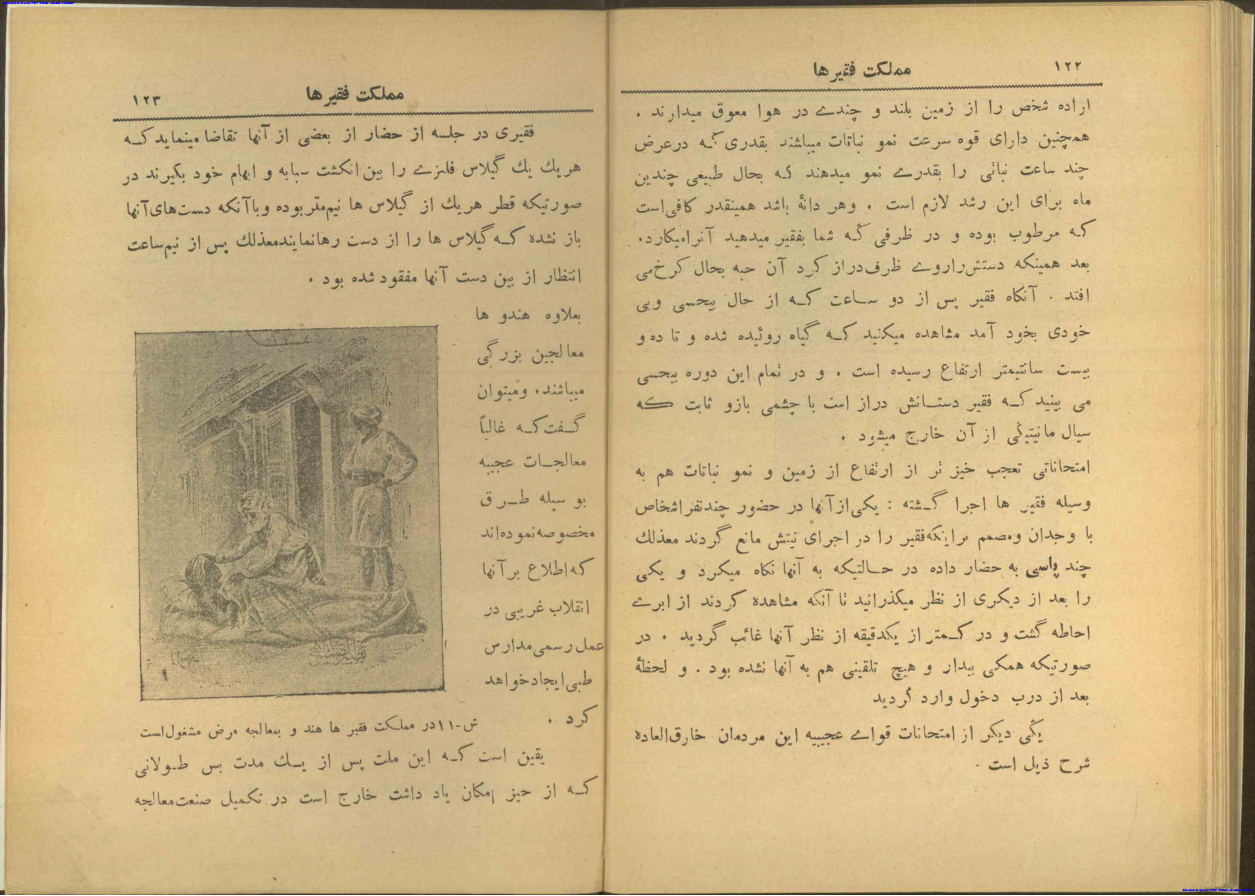 ۱۲۲
مملکت فقیرها
اراده شخص را از زمین بلند و چندے در هوا معوق میدارند .
همچنین دارای قوه سرعت نمو نباتات میباشند بقدری که درعرض
چند ساعت نباتی را بقدرے نمو میدهند که بحال طبیعی چندین
ماه برای این رشد لازم است . وهر دانهٔ باشد همینقدر کافی‌است
که مرطوب بوده و در ظرفی که شما بفقیر میدهید آنرامیکارد.
بعد همینکه دستش‌راروے ظرف‌دراز کرد آن حبه بحال کرخ‌می
افتد . آنکاه فقیر پس از دو ساعت که از حال بیحسی وبی
خودی بخود آمد مشاهده میکنید که گیاه روئیده شده و تا ده و
بیست سانتیمتر ارتفاع رسیده است . و در تمام این دوره بیحسی
می بینید که فقیر دستانش دراز است با چشمی بازو ثابت که
سیال مانیتیکی از آن خارج میشود .
امتحاناتی تعجب خیز تر از ارتفاع از زمین و نمو نباتات هم به
وسیله فقیر ها اجرا گشته : یکی‌ازآنها در حضور چندنفراشخاص
با وجدان ومصمم براینکه‌فقیر را در اجرای نیتش مانع گردند معذلك
چند پاسی به حضار داده در حالتیکه به آنها نکاه میکرد و یکی
را بعد از دیکری از نظر میکذرانید تا آنکه مشاهده کردند از ابرے
احاطه گشت و در کمتر از یکدقیقه از نظر آنها غائب گردید . در
صورتیکه همکی بیدار و هیچ تلقینی هم به آنها نشده بود . و لحظهٔ
بعد از درب دخول وارد گردید
یکی دیکر از امتحانات قواے عجیبیه این مردمان خارق‌العاده
شرح ذیل است .
مملکت فقیرها
۱۲۳
فقیری در جلسه از حضار از بعضی از آنها تقاضا مینماید که
هریك یك گیلاس فلزے را بین انکشت سبابه و ابهام خود بکیرند در
صورتیکه قطر هریك از گیلاس ها نیم‌متر بوده وباآنکه دست‌های‌آنها
باز نشده که گیلاس ها را از دست رهانمایند‌معذلك پس از نیم‌ساعت
انتظار از بین دست آنها مفقود شده بود .
بعلاوه هندو ها
معالجین بزرگی
میباشند. ومیتوان
گفت‌که غالباً
معالجات عجیبه
بو سیله طرق
مخصوصه‌نموده‌اند
که‌اطلاع برآنها
انقلاب غریبی در
عمل رسمی‌مدارس
طبی‌ایجادخواهد
کرد .
ش-۱۱در مملکت فقیر ها هند و بمعالجه مرض مشغول‌است
یقین است که این ملت پس از یك مدت بس طولانی
که از حیز امکان یاد داشت خارج است در تکمیل صنعت‌معالجه